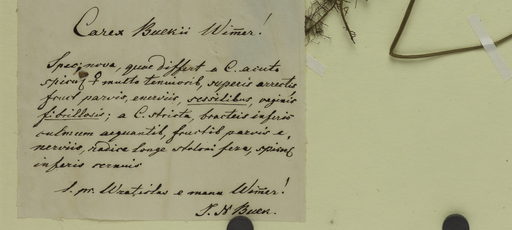 Carex Buekii Wim̄er!
Spec: nova, quae differt a C. acuta
spicul ♀ multo tenuiorib, superis arrectis,
fruct parvis, enerviis, sessilibus, vaginis
fibrillosis; a C. stricta, bracteis inferis
culmum aequantib, fructib parvis e,,
nerviis, radice longe stoloni fera, spicul
inferis cernuis
l. pr. Wratislav e manu Wim̄er!
J. N Buek.